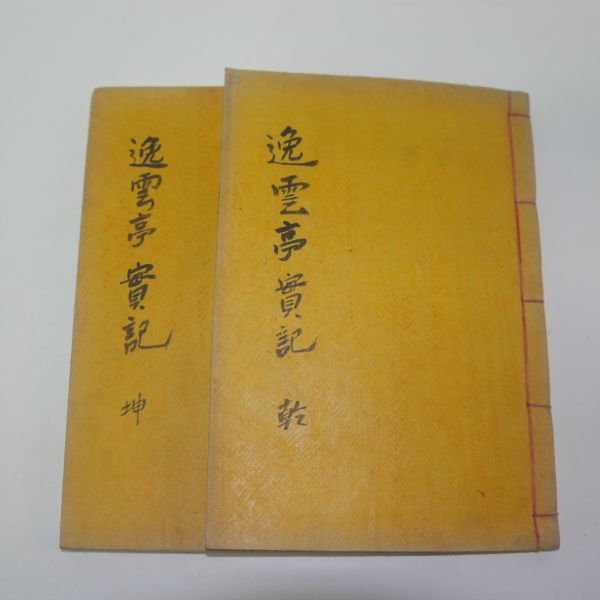 逸雲亭實記 乾
逸雲亭實記 坤